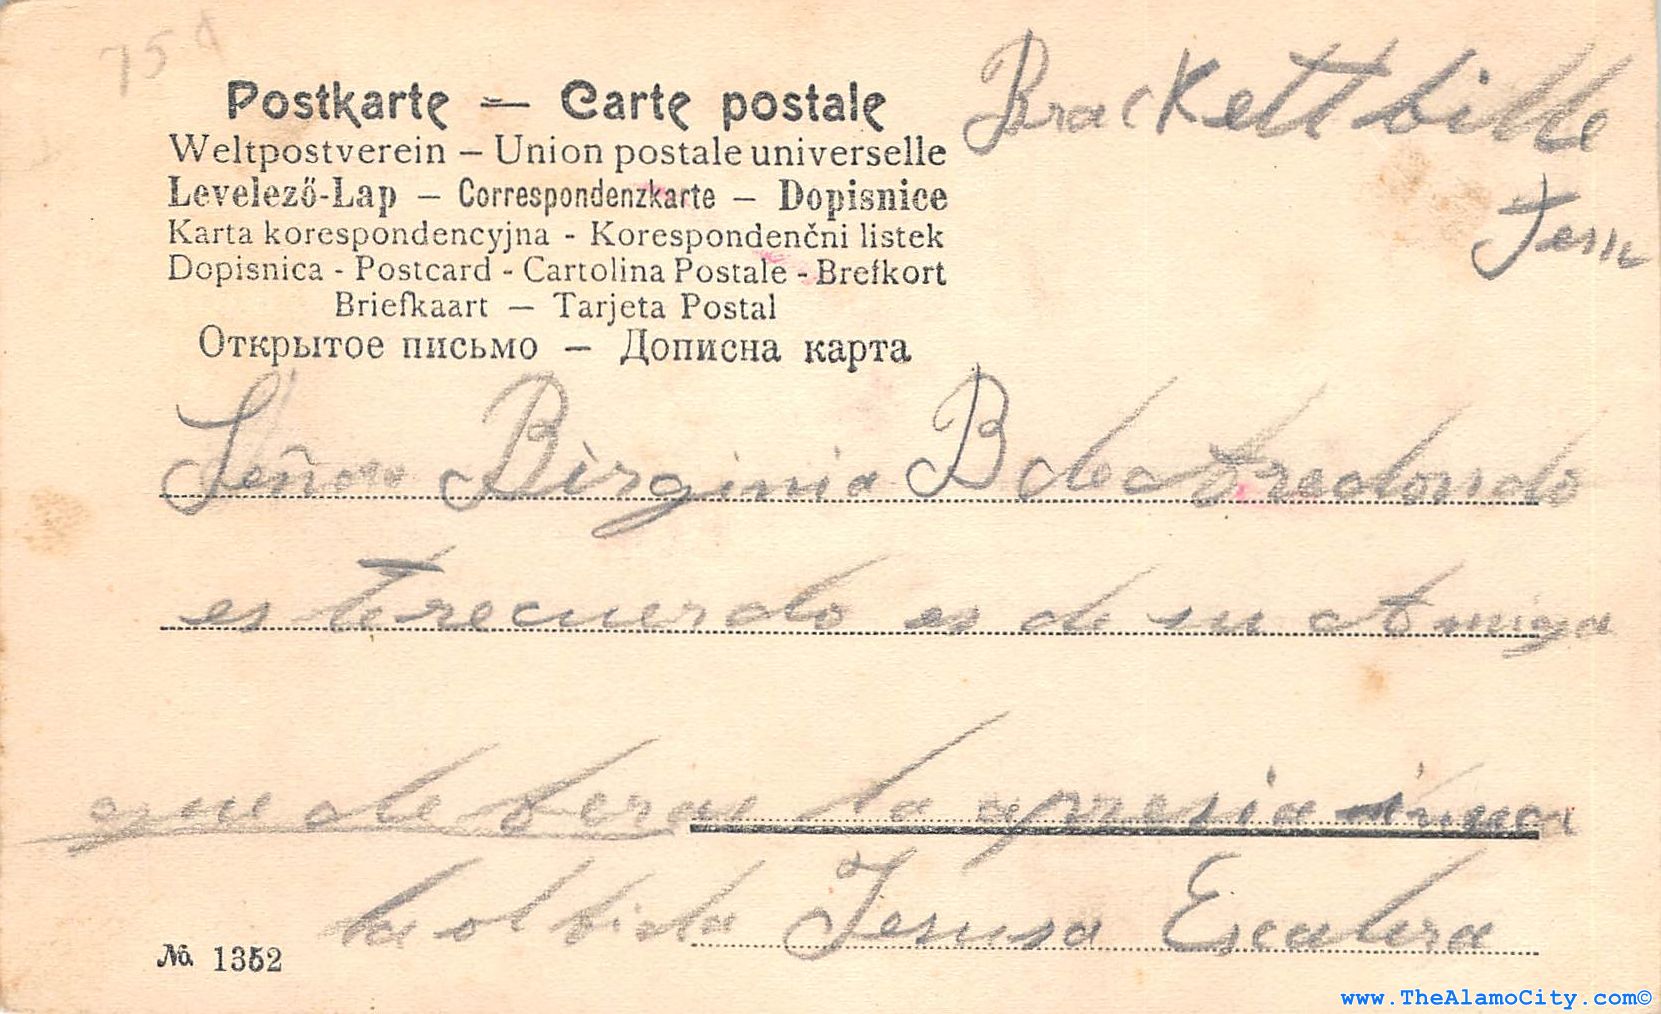 75¢
Brackettbille
Tex
Postkarte — Carte postale
Weltpostverein – Union postale universelle
Levelező-Lap – Correspondenzkarte – Dopisnice
Karta korespondencyjna - Korespondenčni listek
Dopisnica - Postcard - Cartolina Postale - Brefkort
Briefkaart — Tarjeta Postal
Открытое письмо — Дописна карта
Señora Birginia B de Aredondo
este recuerdo es de su Amiga
que de beras la apresia i nunca
la olbida Jesusa Escalera
No. 1352
www.TheAlamoCity.com©